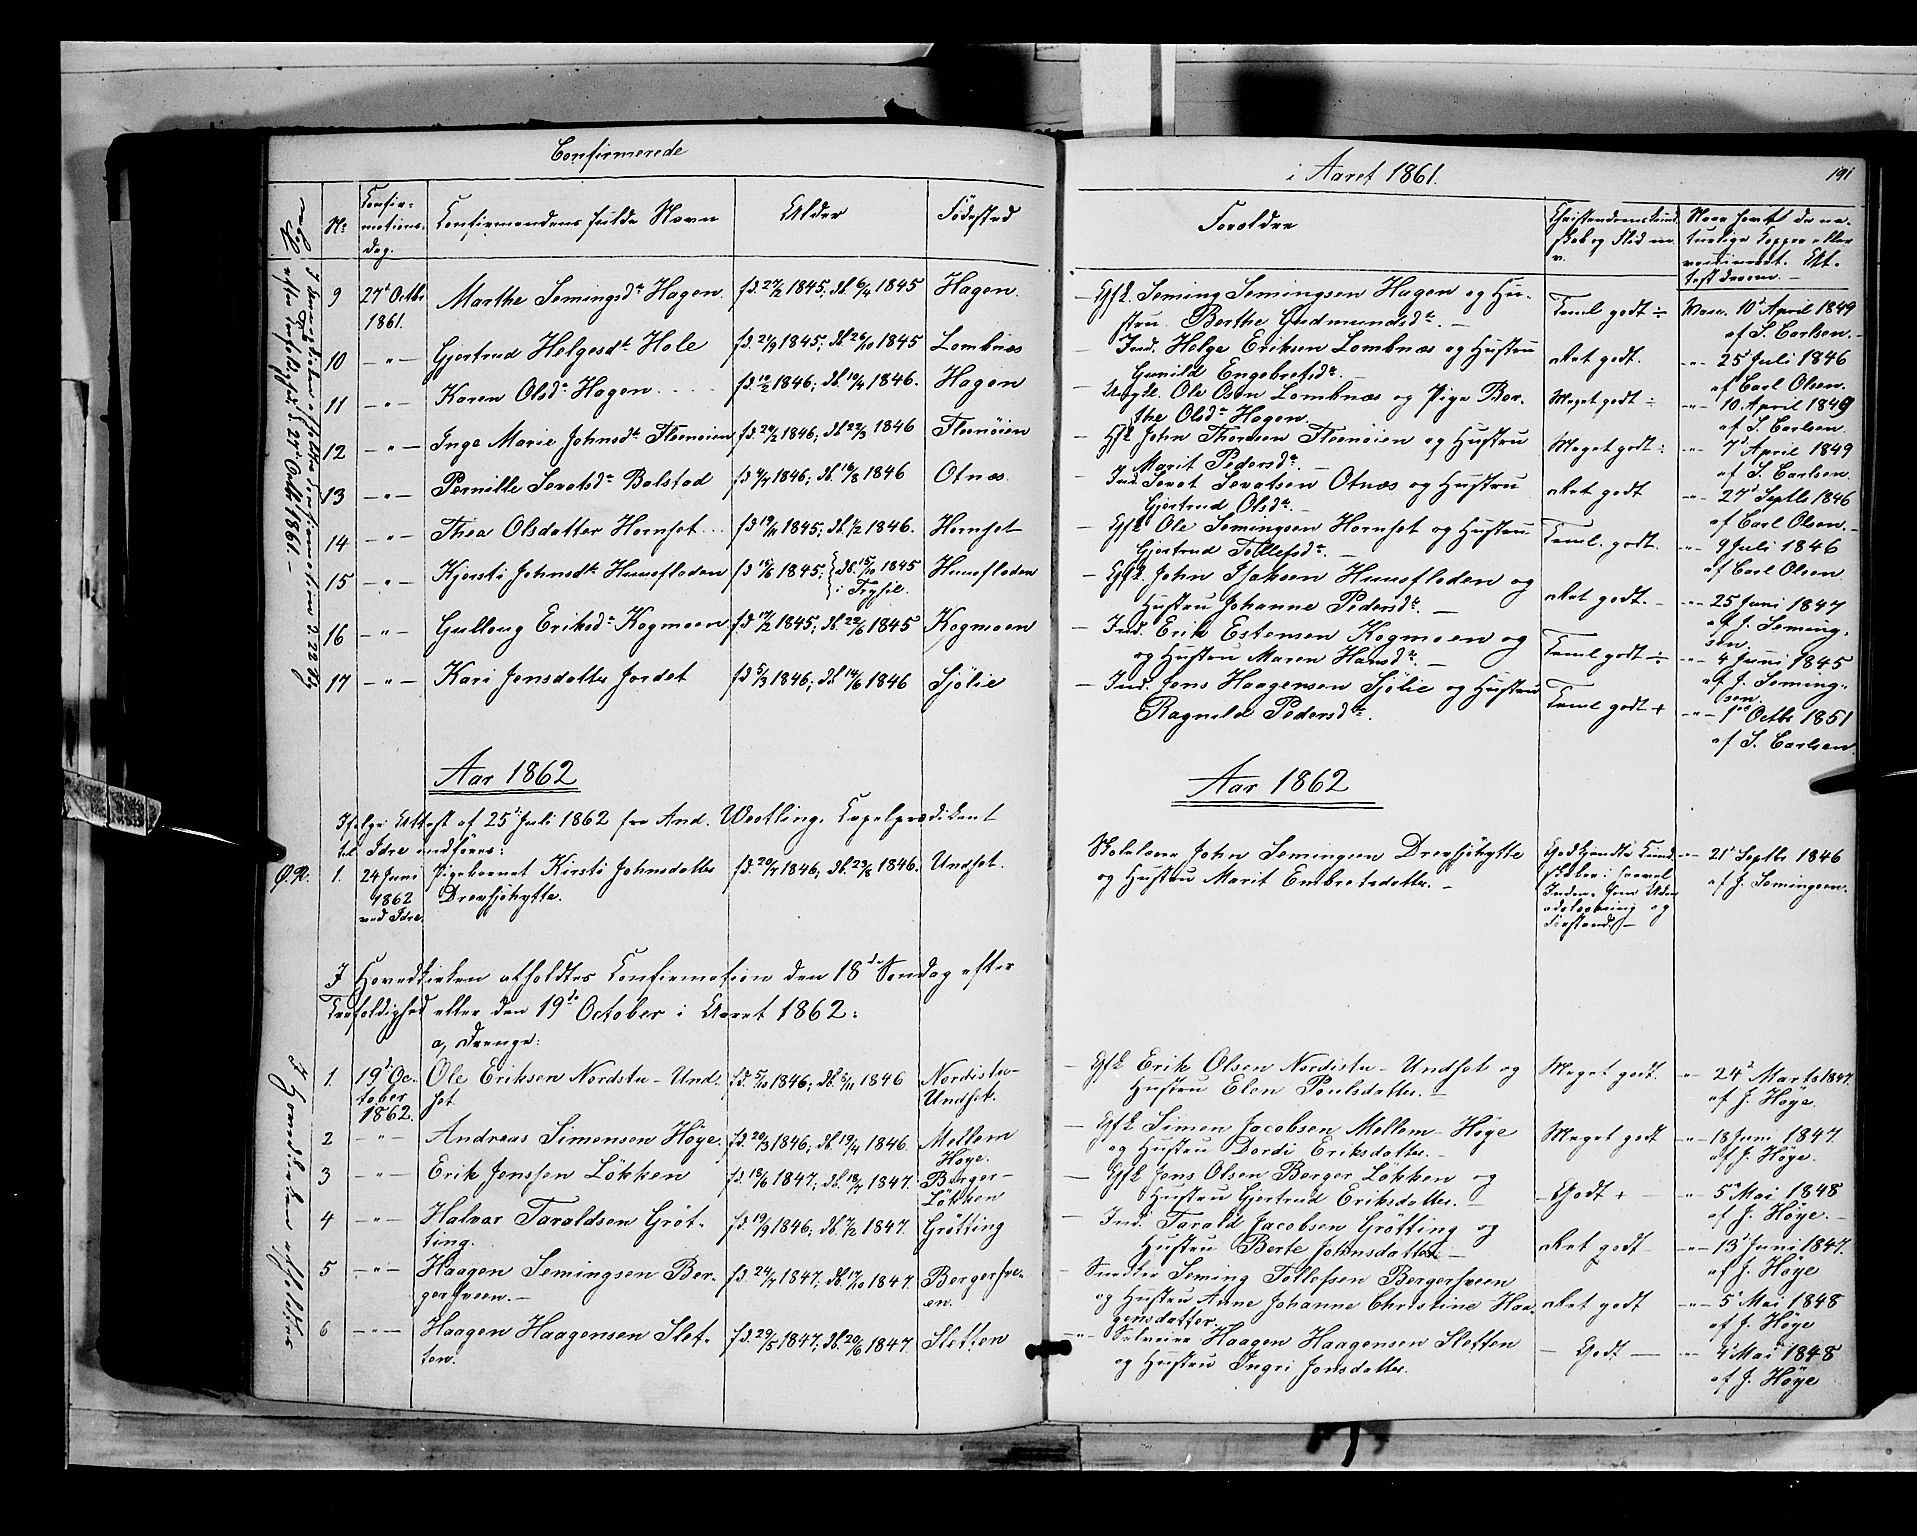 Confirmerede
i Aaret 1861.
191
No
Confir-
mations-
dag.
Confirmandens fulde Navn
Alder
Fødested
Forældre
Christendomskund-
skab og Flid m.
v.
Naar havt de na-
turlige Kopper eller
vaccineret. At-
test derom.
9 27d Octbr 1861. Marthe Semingsdtr Hagen. fd. 27/2 1845; db. 6/4 1845 Hagen. Gfk. Seming Semingsen Hagen og Hu-
stru Berthe Gudmundsdtr. Teml godt ÷ Vacc. 10d April 1849
af S. Carlsen.
10 -"- Gjertrud Helgesdtr Hole fd. 21/9 1845; db. 26/10 1845 Lombnæs Ind. Helge Eriksen Lombnæs og Hustru
Gunild Engebretsdtr. Ret godt. -"- 25d Juli 1846
af Carl Olsen.
11 -"- Karen Olsdtr Hagen fd. 12/2 1846; db. 19/4 1846. Hagen Ungk. Ole Osen Lombnæs og Pige Ber-
the Olsdtr Hagen. Meget godt ÷ -"- 10 April 1849
af S. Carlsen.
12 -"- Inge Marie Johnsdtr Fleenøien fd. 20/2 1846; db. 22/3 1846 Fleenøien Gfk John Thorsen Fleenøien og Hustru
Marit Pedersdtr. Meget godt ÷ -"- 7d April 1849
af S. Carlsen.
13 -"- Pernille Joratsdtr Bolstad fd 4/7 1846; db. 16/8 1846 Otnæs. Ind. Jorat Joratsen Otnæs og Hustru
Gjertrud Olsdtr. Ret godt -"- 27d Septbr 1846
af Carl Olsen.
14 -"- Thea Olsdatter Hornset fd 19/11 1845; db. 1/2 1846. Hornset Gfk Ole Semingsen Hornset og Hustru
Gjertrud Tollefsdtr. Teml. godt. -"- 9 Juli 1846
af Carl Olsen
15 -"- Kjersti Johnsdtr Hunsfloden fd 14/6 1845; db. 15/10 1845
i Trysil. Hunsfloden Gfk. John Isaksen Hunsfloden og
Hustru Johanne Pedersdtr. Ret godt. -"- 25 Juni 1847
af J. Seming-
sen.
16 -"- Gulloug Eriksdtr Kogmoen fd 17/2 1845; db. 22/6 1845 Kogmoen Ind. Erik Estensen Kogmoen og
og Hustru Maren Hansdtr. Teml godt ÷ -"- 4 Juni 1845
af J. Seming-
sen.
17 -"- Kari Jensdatter Jordet fd 5/3 1846; db. 14/6 1846 Sjölie Ind. Jens Haagensen Sjölie og Hustru
Ragnild Pedersdtr. Teml godt + -"- 1ste Octbr 1851
af S. Carlsen.
Aar 1862
Aar 1862
Ifølge Attest af 25d Juli 1862 fra And. Westling, Capelprædikant
til Idre indføres:
1. 24 Juni
1862
ved Idre. Pigebarnet Kirsti Johnsdatter
Drevsjöhytte. fd. 20/7 1846; db. 23/8 1846. Undset. Skolelærer John Semingsen Drevsjöhytte
og Hustru Marit Embretsdatter. Godkjendte Kund-
skaber i saavel
Inden- som Uden
adslæsning og
Forstand -"- 21d Septbr 1846
af J. Semingsen.
I Hovedkirken afholdtes Confirmation den 18de Søndag efter
Trefoldighed eller den 19de October i Aaret 1862:
a, Drenge:
1. 19d Oc-
tober
1862. Ole Eriksen Nordstu-Und-
set fd. 5/10 1846; db. 8/11 1846 Nordistu-
Undset. Gfk Erik Olsen Nordistu-Undset og
Hustru Elen Poulsdatter. Meget godt. " 24d Marts 1847.
af J. Höye.
2 -"- Andreas Simensen Höye. fd. 20/3 1846; db. 19/4 1846. Mellem
Höye. Gfk Simen Jacobsen Mellem-Höye
og Hustru Dordi Eriksdatter. Meget godt -"- 18 Juni 1847.
af J. Höye.
3 -"- Erik Jenssen Lökken fd. 13/6 1847; db. 18/7 1847. Berger-
Lökken Gfk Jens Olsen Berger Lökken og
Hustru Gertrud Eriksdatter. Godt + " 5d Mai 1848
af J. Höye.
4 -"- Halvor Taraldsen Gröt-
ting. fd. 19/9 1846; db. 7/2 1847. Grötting Ind. Tarald Jacobsen Grötting og
Hustru Berte Johnsdatter Ret godt -"- 13d Juni 1847.
af J. Höye
5 -"- Haagen Semingsen Ber-
gersveen. fd. 24/7 1847. db 17/10 1847. Bergersve-
en. Snedker Seming Tollefsen Bergersveen
og Hustru Anne Johanne Christine Haa-
gensdatter. Ret godt -"- 5d Mai 1848
af J. Höye
6 -"- Haagen Haagensen Slet-
ten. fd. 29/5 1847; db 20/6 1847. Sletten Selveier Haagen Haagensen Sletten
og Hustru Ingri Jonsdatter. Godt -"- 4d Mai 1848
af J. Höye
I Hovedkirken afholdtes